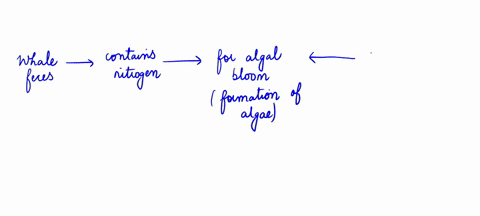 Whale feces
contains nitrogen
for algal bloom
(formation of algae)